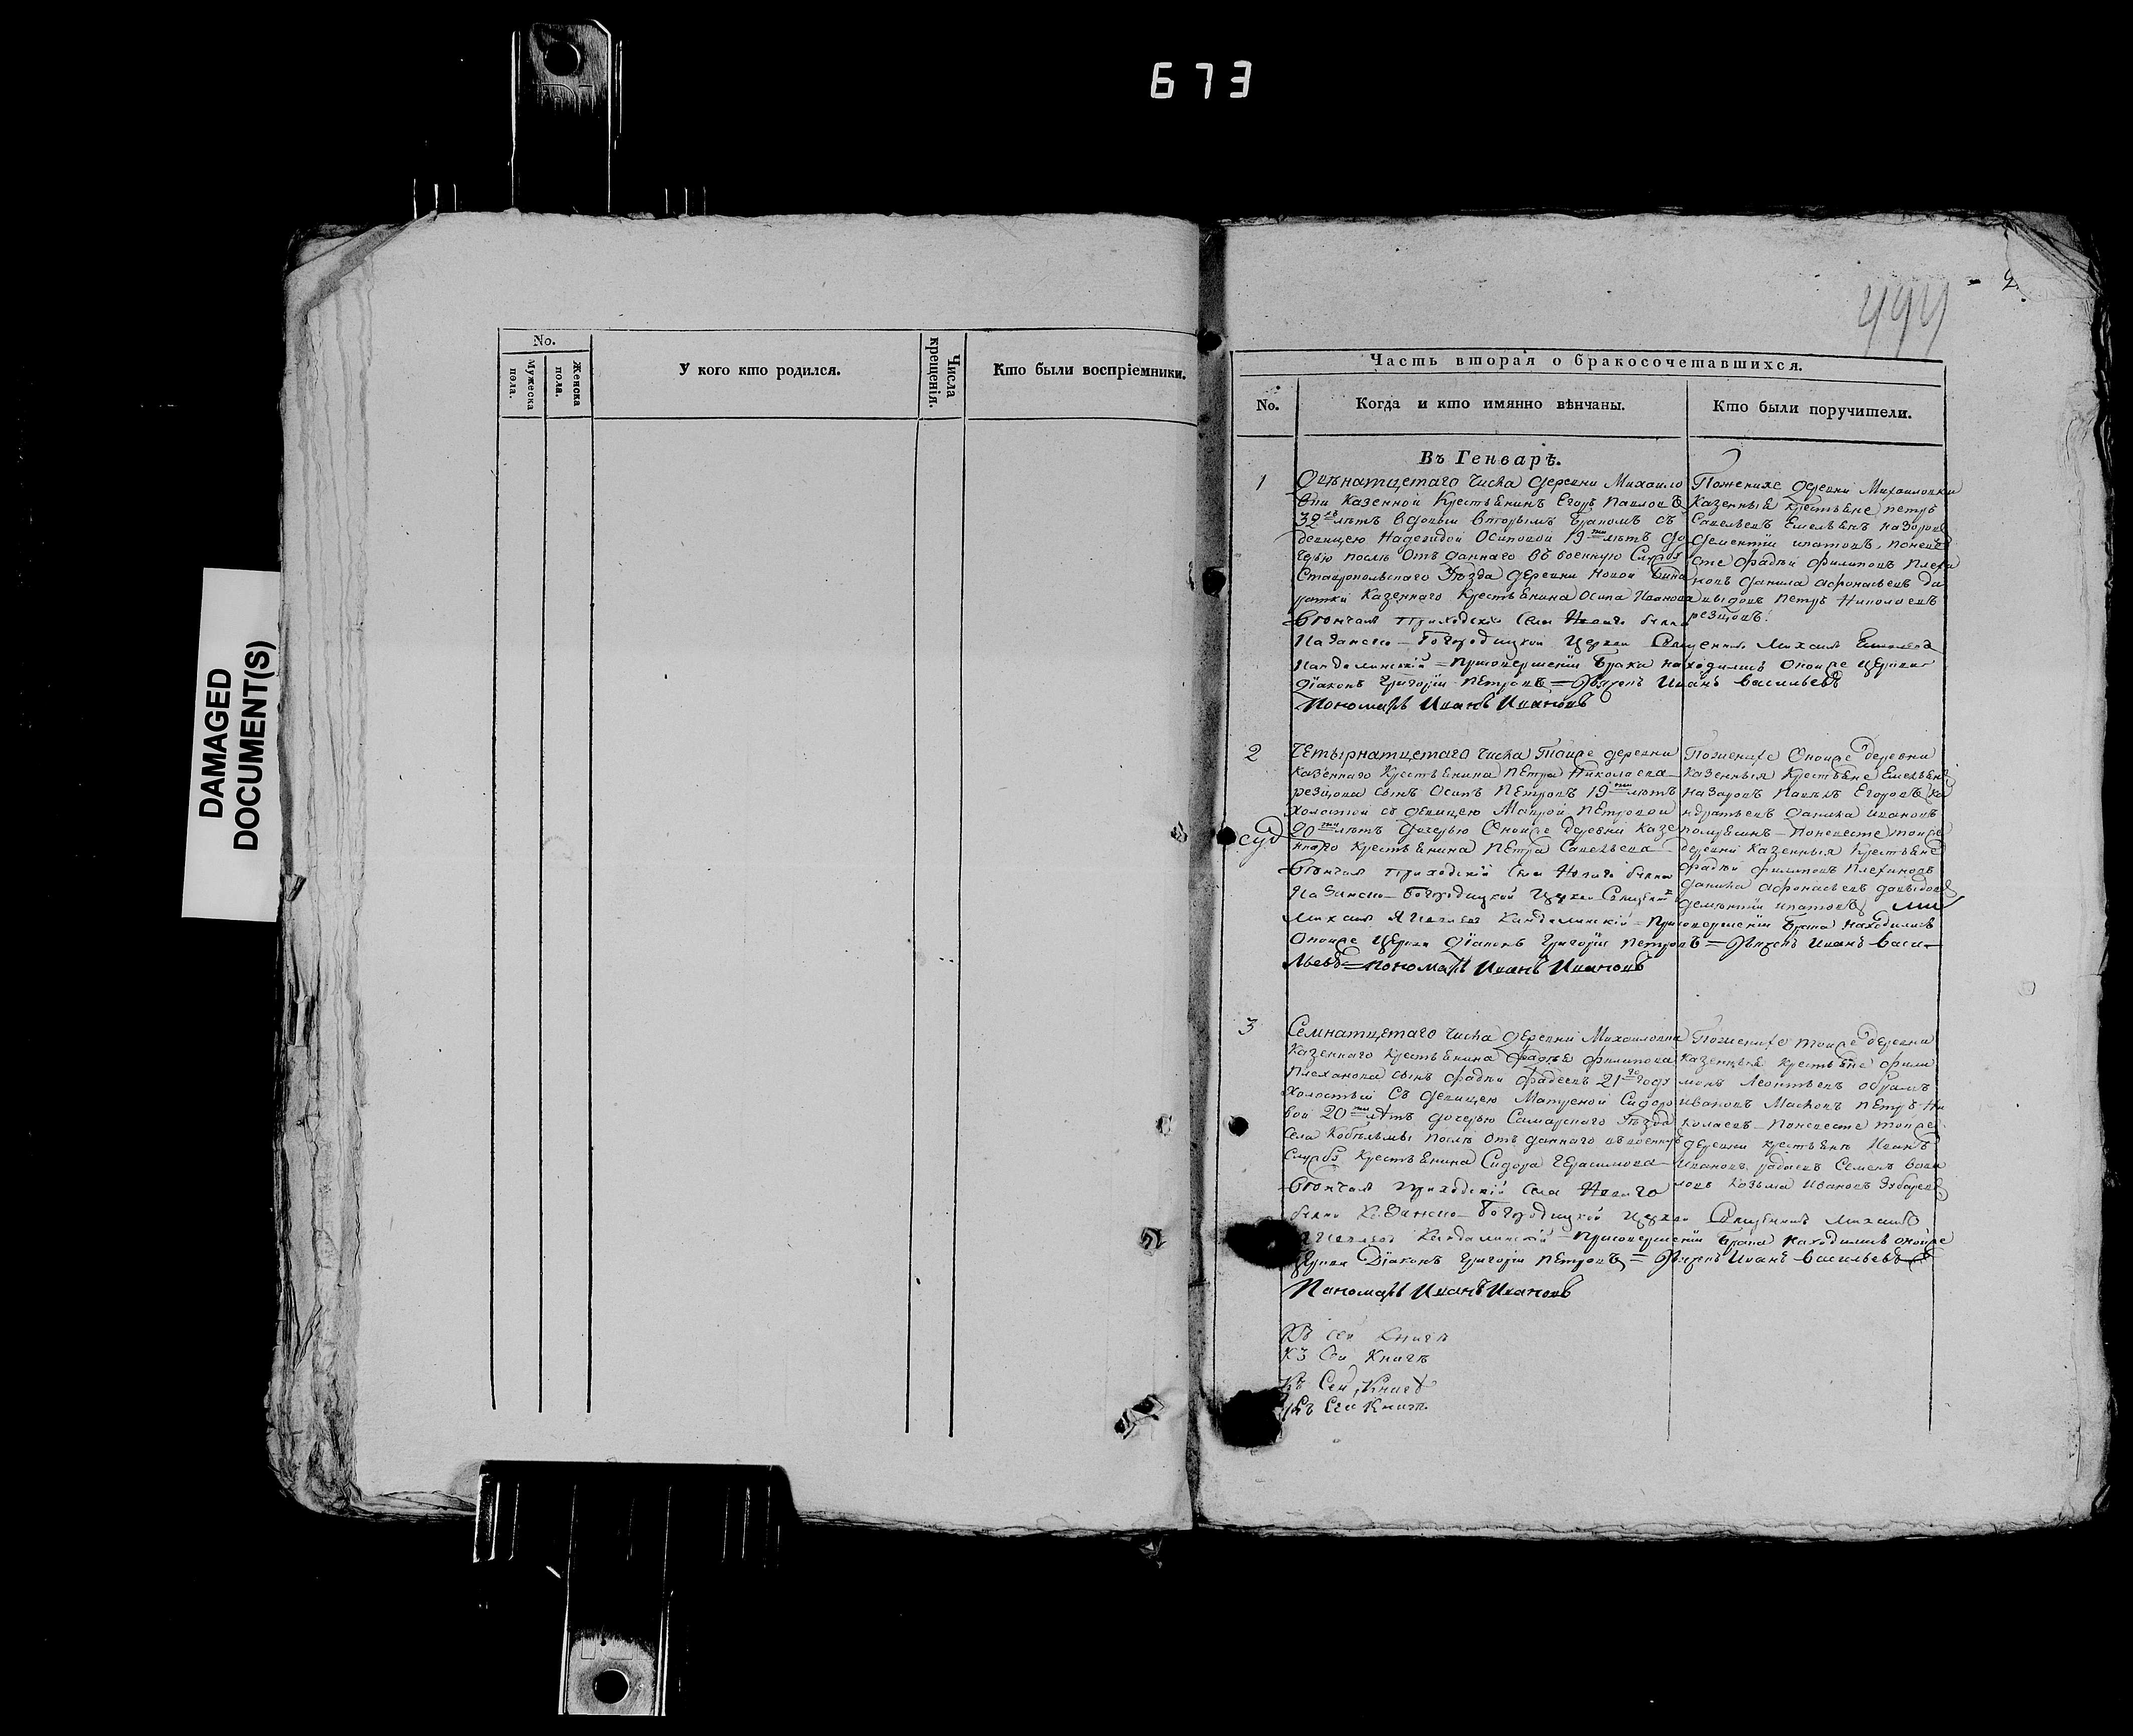 673
DAMAGED
DOCUMENT(S)
No.
Мужеска пола.
Женска пола.
У кого кто родился.
Числа крещенія.
Кто были воспріемники.
2.
Часть вторая о бракосочетавшихся.
No.
Когда и кто имянно вѣнчаны.
Кто были поручители.
Въ Генварѣ.
1
числа деревни Михаило
вки казенной крестьянинъ Егоръ Павловъ
32 лѣтъ вдовый вторымъ бракомъ съ
девицею Надеждой Осиповой 19 лѣтъ до
черью после отданнаго въ военную службу
Ставропольскаго уѣзда деревни Новой Бина
радки казеннаго крестьянина Осипа Иванова
Венчалъ приходскій села
Казанско-Богородицкой церкви Священникъ Михаилъ
Кандалинскій = при совершеніи брака находились оной же церкви
діаконъ Григорій Петровъ = Иванъ Васильевъ
Пономарь Иванъ Ивановъ
По женихе деревни Михаиловки
казенные крестьяне Петръ
Савельевъ Емельянъ Назаровъ
Дементій Ипатовъ. по неве
сте Фадей Филиповъ Плеха
новъ Данила Афонасьевъ Да
выдовъ Петръ Николаевъ
резцовъ.
2
Четырнатцетаго числа той же деревни
казеннаго крестьянина Петра Николаева
резцова сынъ Осипъ Петровъ 19 лѣтъ
холостой съ девицею Маврой Петровой
20 лѣтъ дочерью оной же деревни казе
ннаго крестьянина Петра Савельева
Венчалъ приходскій села
Казанско-Богородицкой церкви
Михаилъ Кандалинскій = при совершеніи брака находились
оной же церкви діаконъ Григорій Петровъ = Иванъ Васи-
льевъ = пономарь Иванъ Ивановъ
По женихе оной же деревни
казенныя крестьяне Емельянъ
Назаровъ Павелъ Егоровъ Ко
ндратьевъ Данила Ивановъ
По невесте той же
деревни казенныя крестьяне
Фадей Филиповъ Плехановъ
Данила Афонасьевъ Давыдовъ
Дементій Ипатовъ
3
Семнатцетаго числа деревни Михаиловки
казеннаго крестьянина Фадея Филипова
Плеханова сынъ Фадей Фадеевъ 21 году
холостый съ девицею Матреной Сидоро
вой 20 лѣтъ дочерью Самарскаго уѣзда
села Кобельмы после отданнаго въ военную
службу крестьянина Сидора Герасимова
Венчалъ приходскій села
Казанско-Богородицкой церкви Михаилъ
Кандалинскій = при совершеніи брака находились оной же
церкви Діаконъ Григорій Петровъ = Иванъ Васильевъ
Пономарь Иванъ Ивановъ
По женихе той же деревни
казенныя крестьяне Фили
монъ Леонтьевъ
Ивановъ Петръ Ни
колаевъ по невесте той же
деревни крестьяне Иванъ
Ивановъ Семенъ
Козьма Ивановъ
Къ сей книгѣ
Къ сей книгѣ
Къ сей книгѣ
Къ сей книгѣ